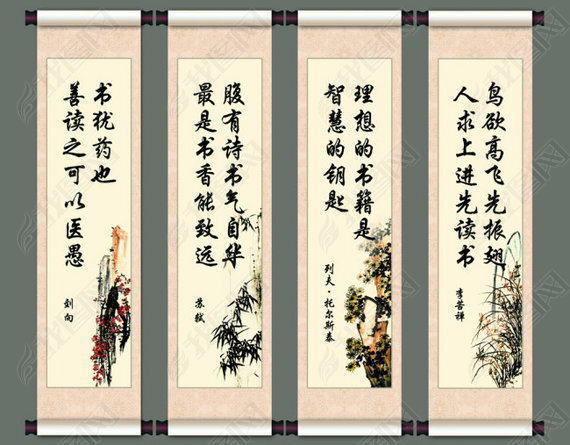 鸟欲高飞先振翅
人求上进先读书
李苦禅
理想的书籍是
智慧的钥匙
列夫·托尔斯泰
腹有诗书气自华
最是书香能致远
苏轼
书犹药也
善读之可以医愚
剑向